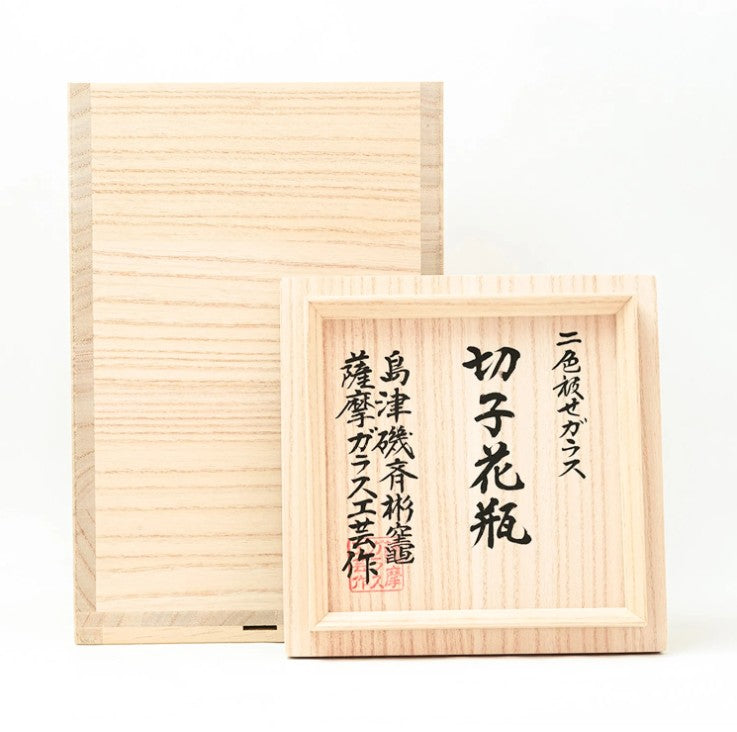 二色被せガラス
切子花瓶
島津磯斉彬竈
薩摩ガラス工芸作